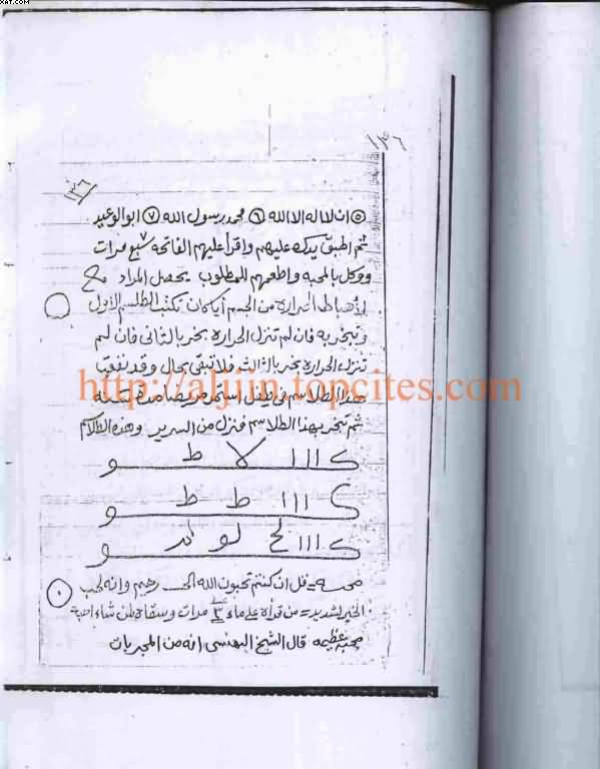 XAT.COM
١٣٦
١٣٦
٥ ان لا اله الا الله ٦ محمد رسول الله ٧ ابو الوعيد
ثم اطبق يدك عليهم واقرأ عليهم الفاتحه سبع مرات
ووكل بالمحبه واطعمهم للمطلوب يحصل المراد
الحراره من الجسم أيا كان تكتب الطلسم الأول
وتبخر به فان لم تنزل الحراره بخر بالثانى فان لم
تنزل الحراره بخر بالثالث فلا تبقى بحال وقد نفعت
هذا الطلاسم فى طفل استمر مريضا
http://aljiin.topcites.com
ثم بخر بهذا الطلاسم فنزل من السرير وهذه
ك ااا لا ط و
ك ااا ط ط و
ك ااا لح لو و
محبه قل ان كنتم تحبون الله رحيم وانه لحب
الخير لشديد من قرأه على ماء ٣ مرات وسقاه لمن شاء احبه
محبه عظيمه قال الشيخ انه من المجربات